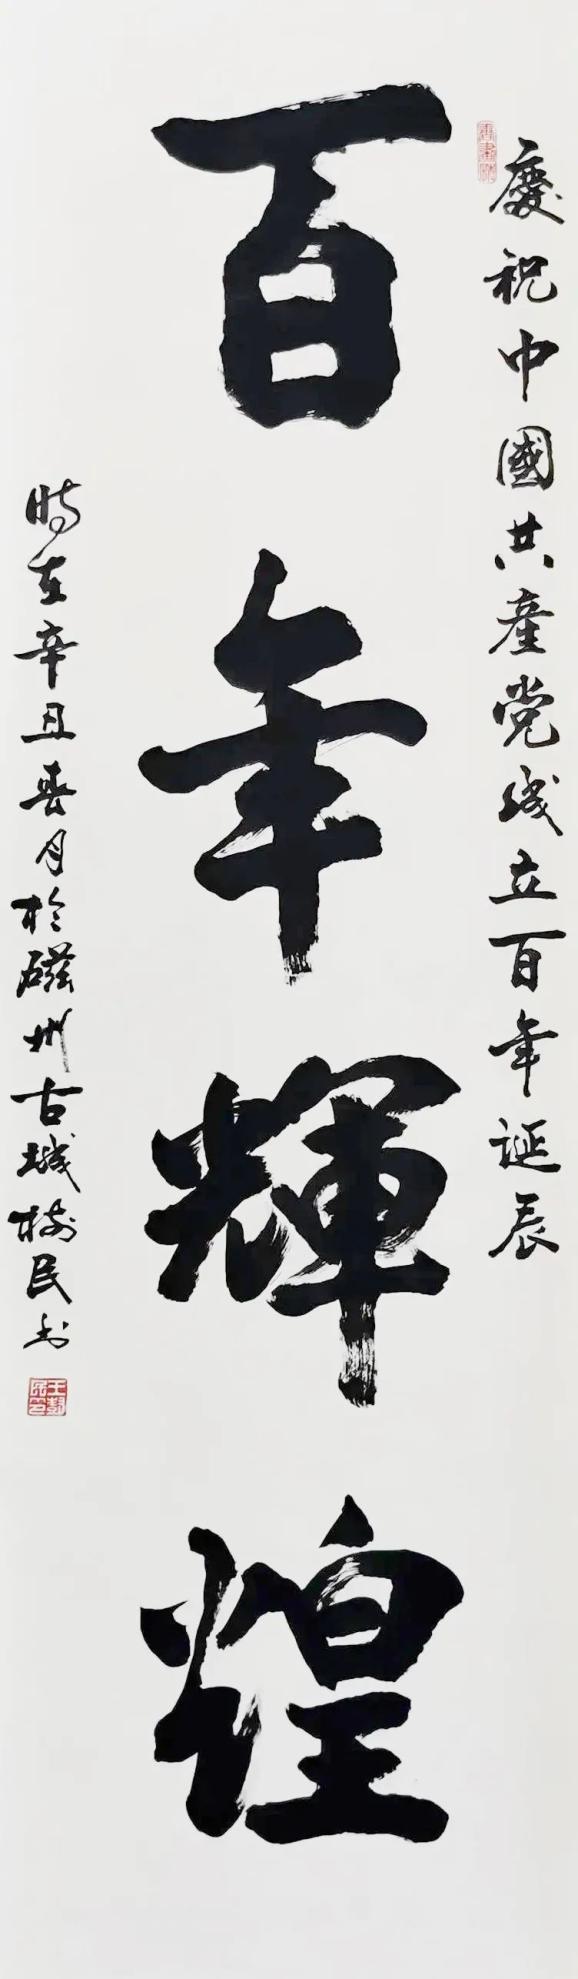 慶祝中國共產党成立百年誕辰
百年輝煌
時在辛丑春月於磁州古城樹民书